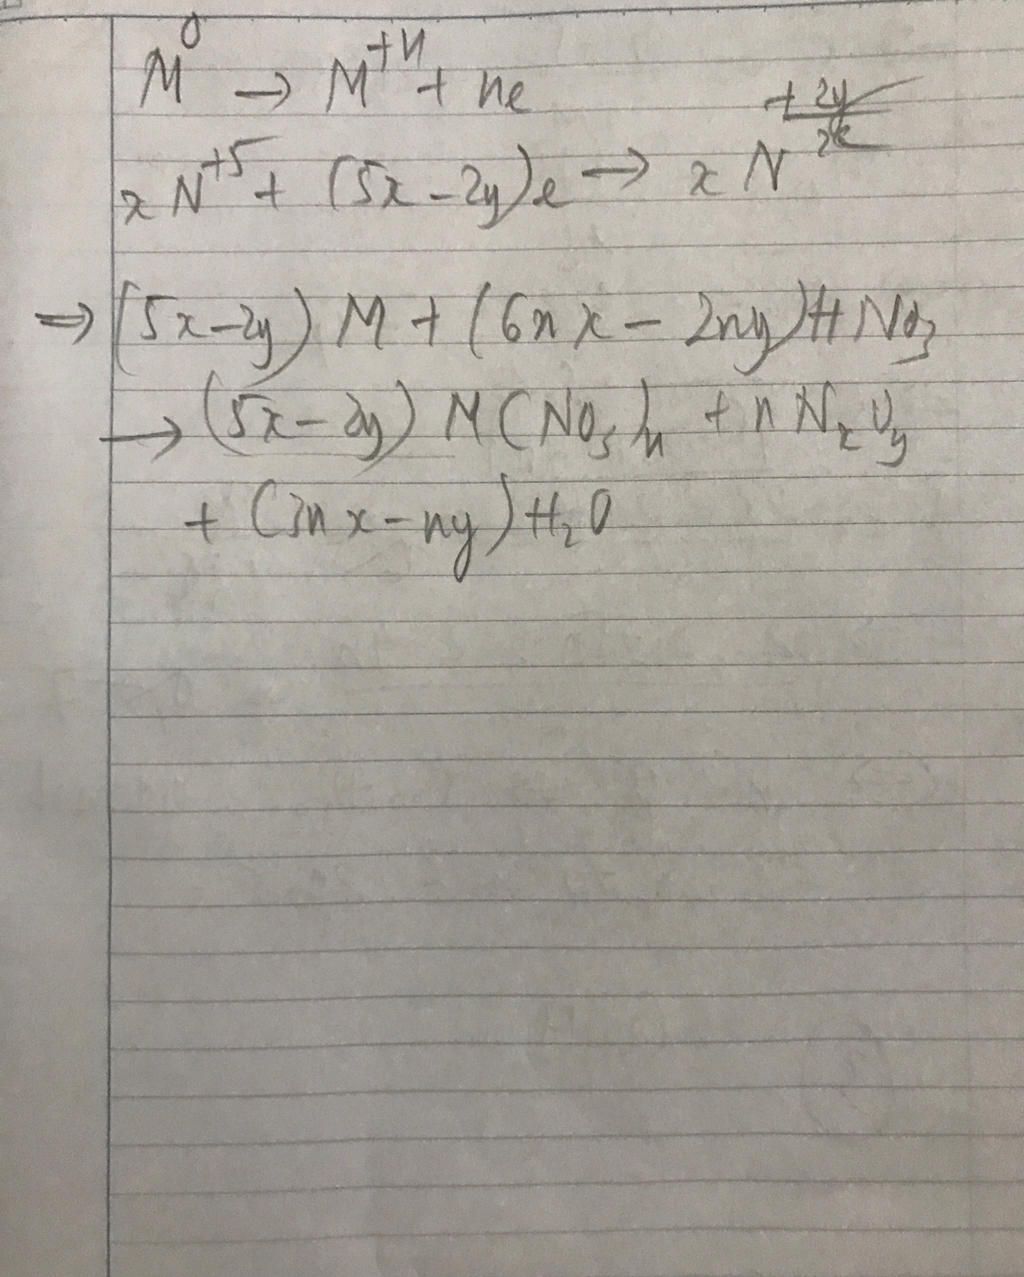 M⁰ → M⁺ⁿ + ne
xN⁺⁵ + (5x-2y)e → xN^(+2y/x)
⇒ (5x-2y) M + (6nx - 2ny)HNO₃
→ (5x-2y) M(NO₃)ₙ + nNₓOᵧ
+ (3nx-ny)H₂O